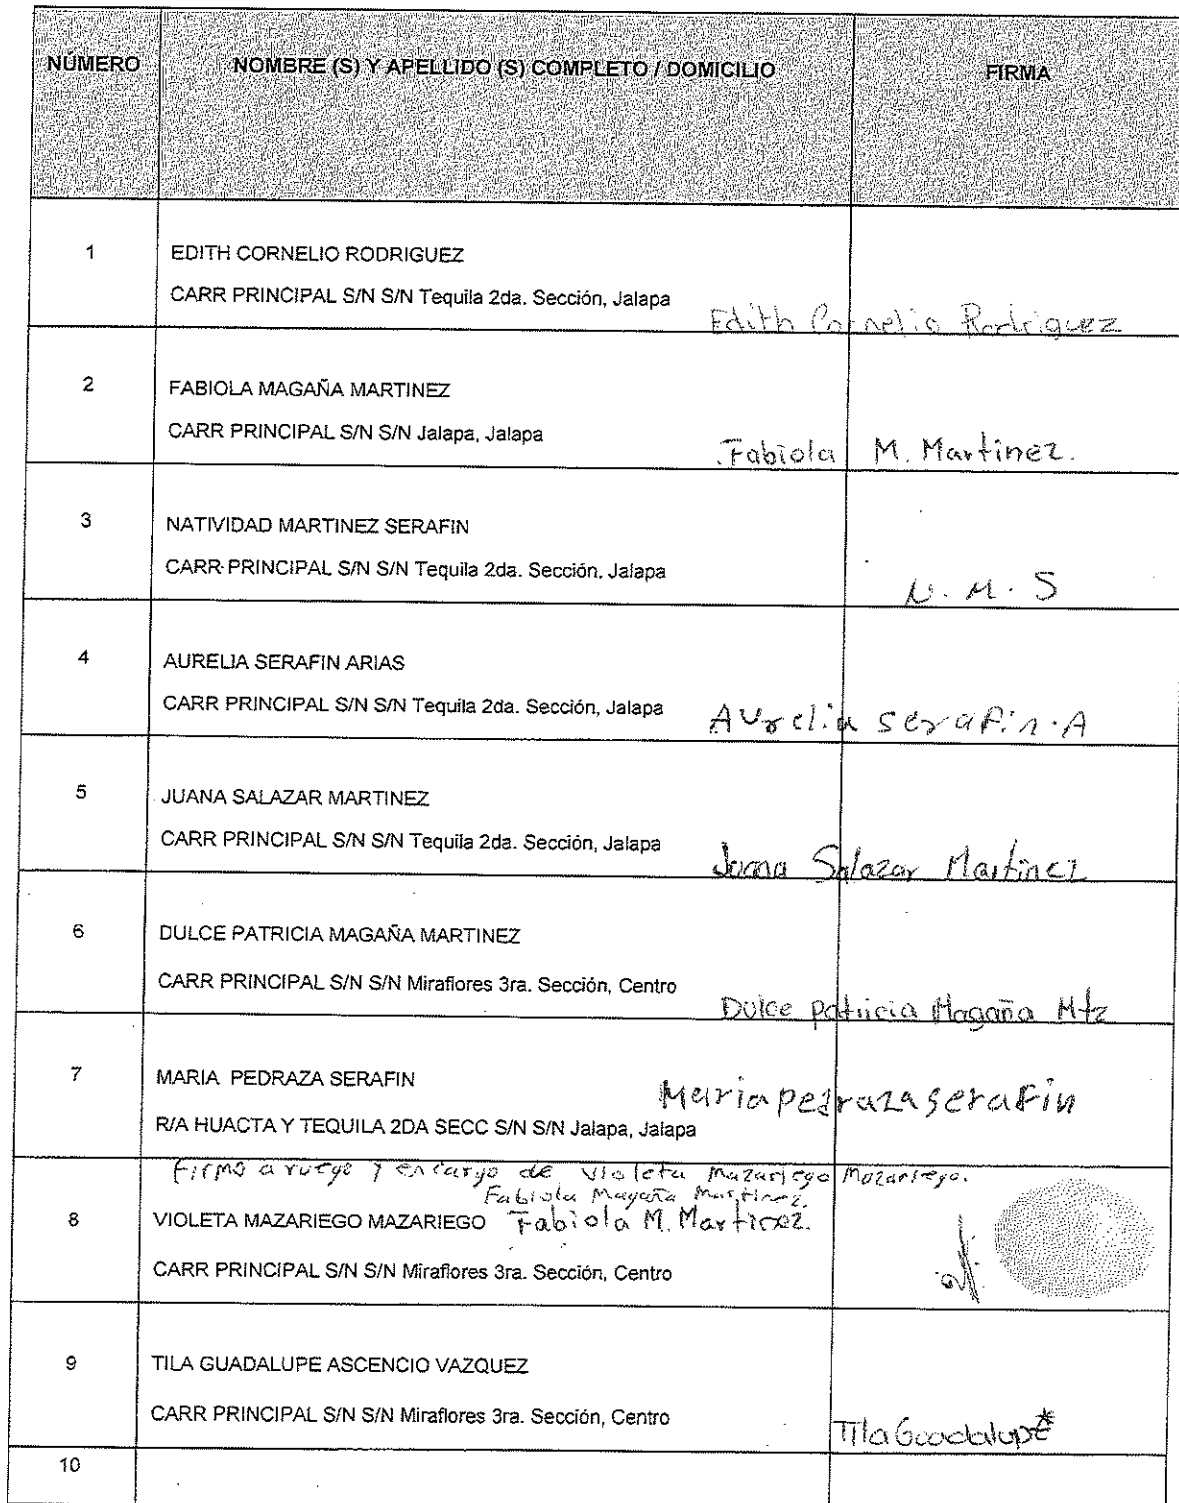 NÚMERO NOMBRE (S) Y APELLIDO (S) COMPLETO / DOMICILIO FIRMA
1 EDITH CORNELIO RODRIGUEZ
CARR PRINCIPAL S/N S/N Tequila 2da. Sección, Jalapa
Edith Cornelio Rodriguez
2 FABIOLA MAGAÑA MARTINEZ
CARR PRINCIPAL S/N S/N Jalapa, Jalapa
Fabiola M. Martinez.
3 NATIVIDAD MARTINEZ SERAFIN
CARR PRINCIPAL S/N S/N Tequila 2da. Sección, Jalapa
N. M. S
4 AURELIA SERAFIN ARIAS
CARR PRINCIPAL S/N S/N Tequila 2da. Sección, Jalapa
Aurelia serafin. A
5 JUANA SALAZAR MARTINEZ
CARR PRINCIPAL S/N S/N Tequila 2da. Sección, Jalapa
Juana Salazar Martinez
6 DULCE PATRICIA MAGAÑA MARTINEZ
CARR PRINCIPAL S/N S/N Miraflores 3ra. Sección, Centro
Dulce patricia Magaña Mtz
7 MARIA PEDRAZA SERAFIN
Maria pedraza serafin
R/A HUACTA Y TEQUILA 2DA SECC S/N S/N Jalapa, Jalapa
Firmo a ruego y encargo de Violeta Mazariego Mazariego.
Fabiola Magaña Martinez.
8 VIOLETA MAZARIEGO MAZARIEGO Fabiola M. Martinez.
CARR PRINCIPAL S/N S/N Miraflores 3ra. Sección, Centro
9 TILA GUADALUPE ASCENCIO VAZQUEZ
CARR PRINCIPAL S/N S/N Miraflores 3ra. Sección, Centro
Tila Guadalupe*
10